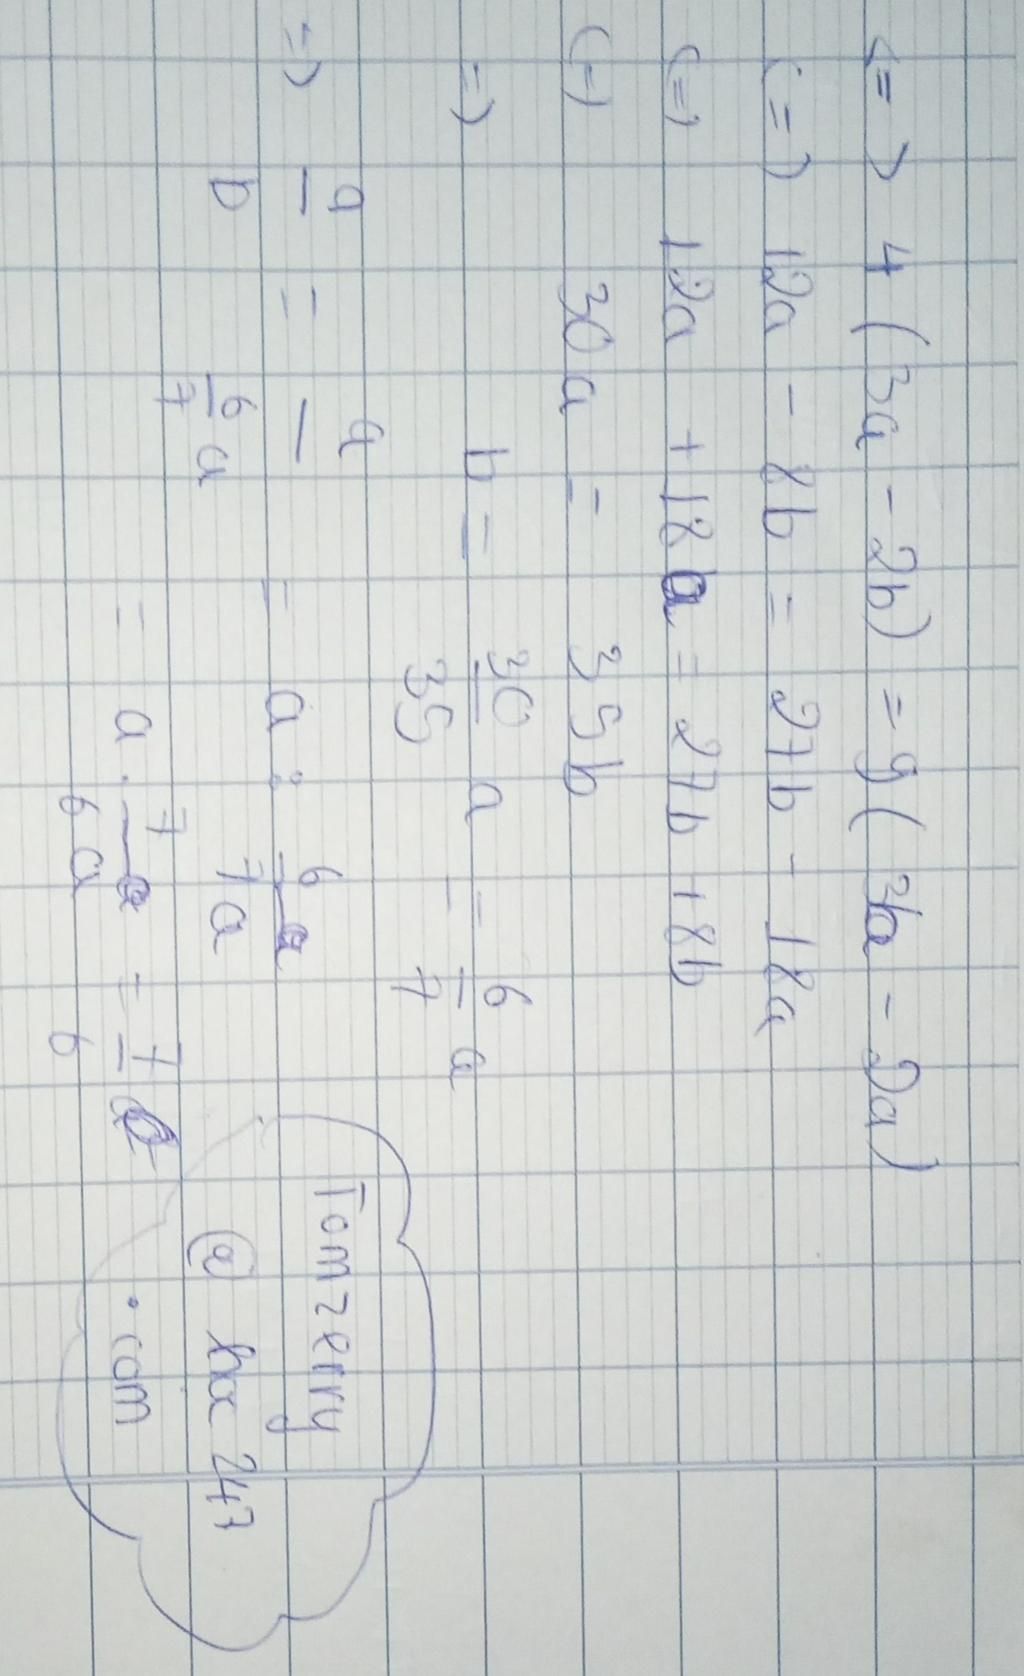 <=> 4(3a - 2b) = 9(3b - 2a)
(=) 12a - 8b = 27b - 18a
(=) 12a + 18a = 27b + 8b
(=) 30a = 35b
=) b = 30/35 a = 6/7 a
=) a/b = a/(6/7 a) = a : 6a/7a
= a . 7a/6a = 7/6
Tomzerry
@ hoc 247
.com